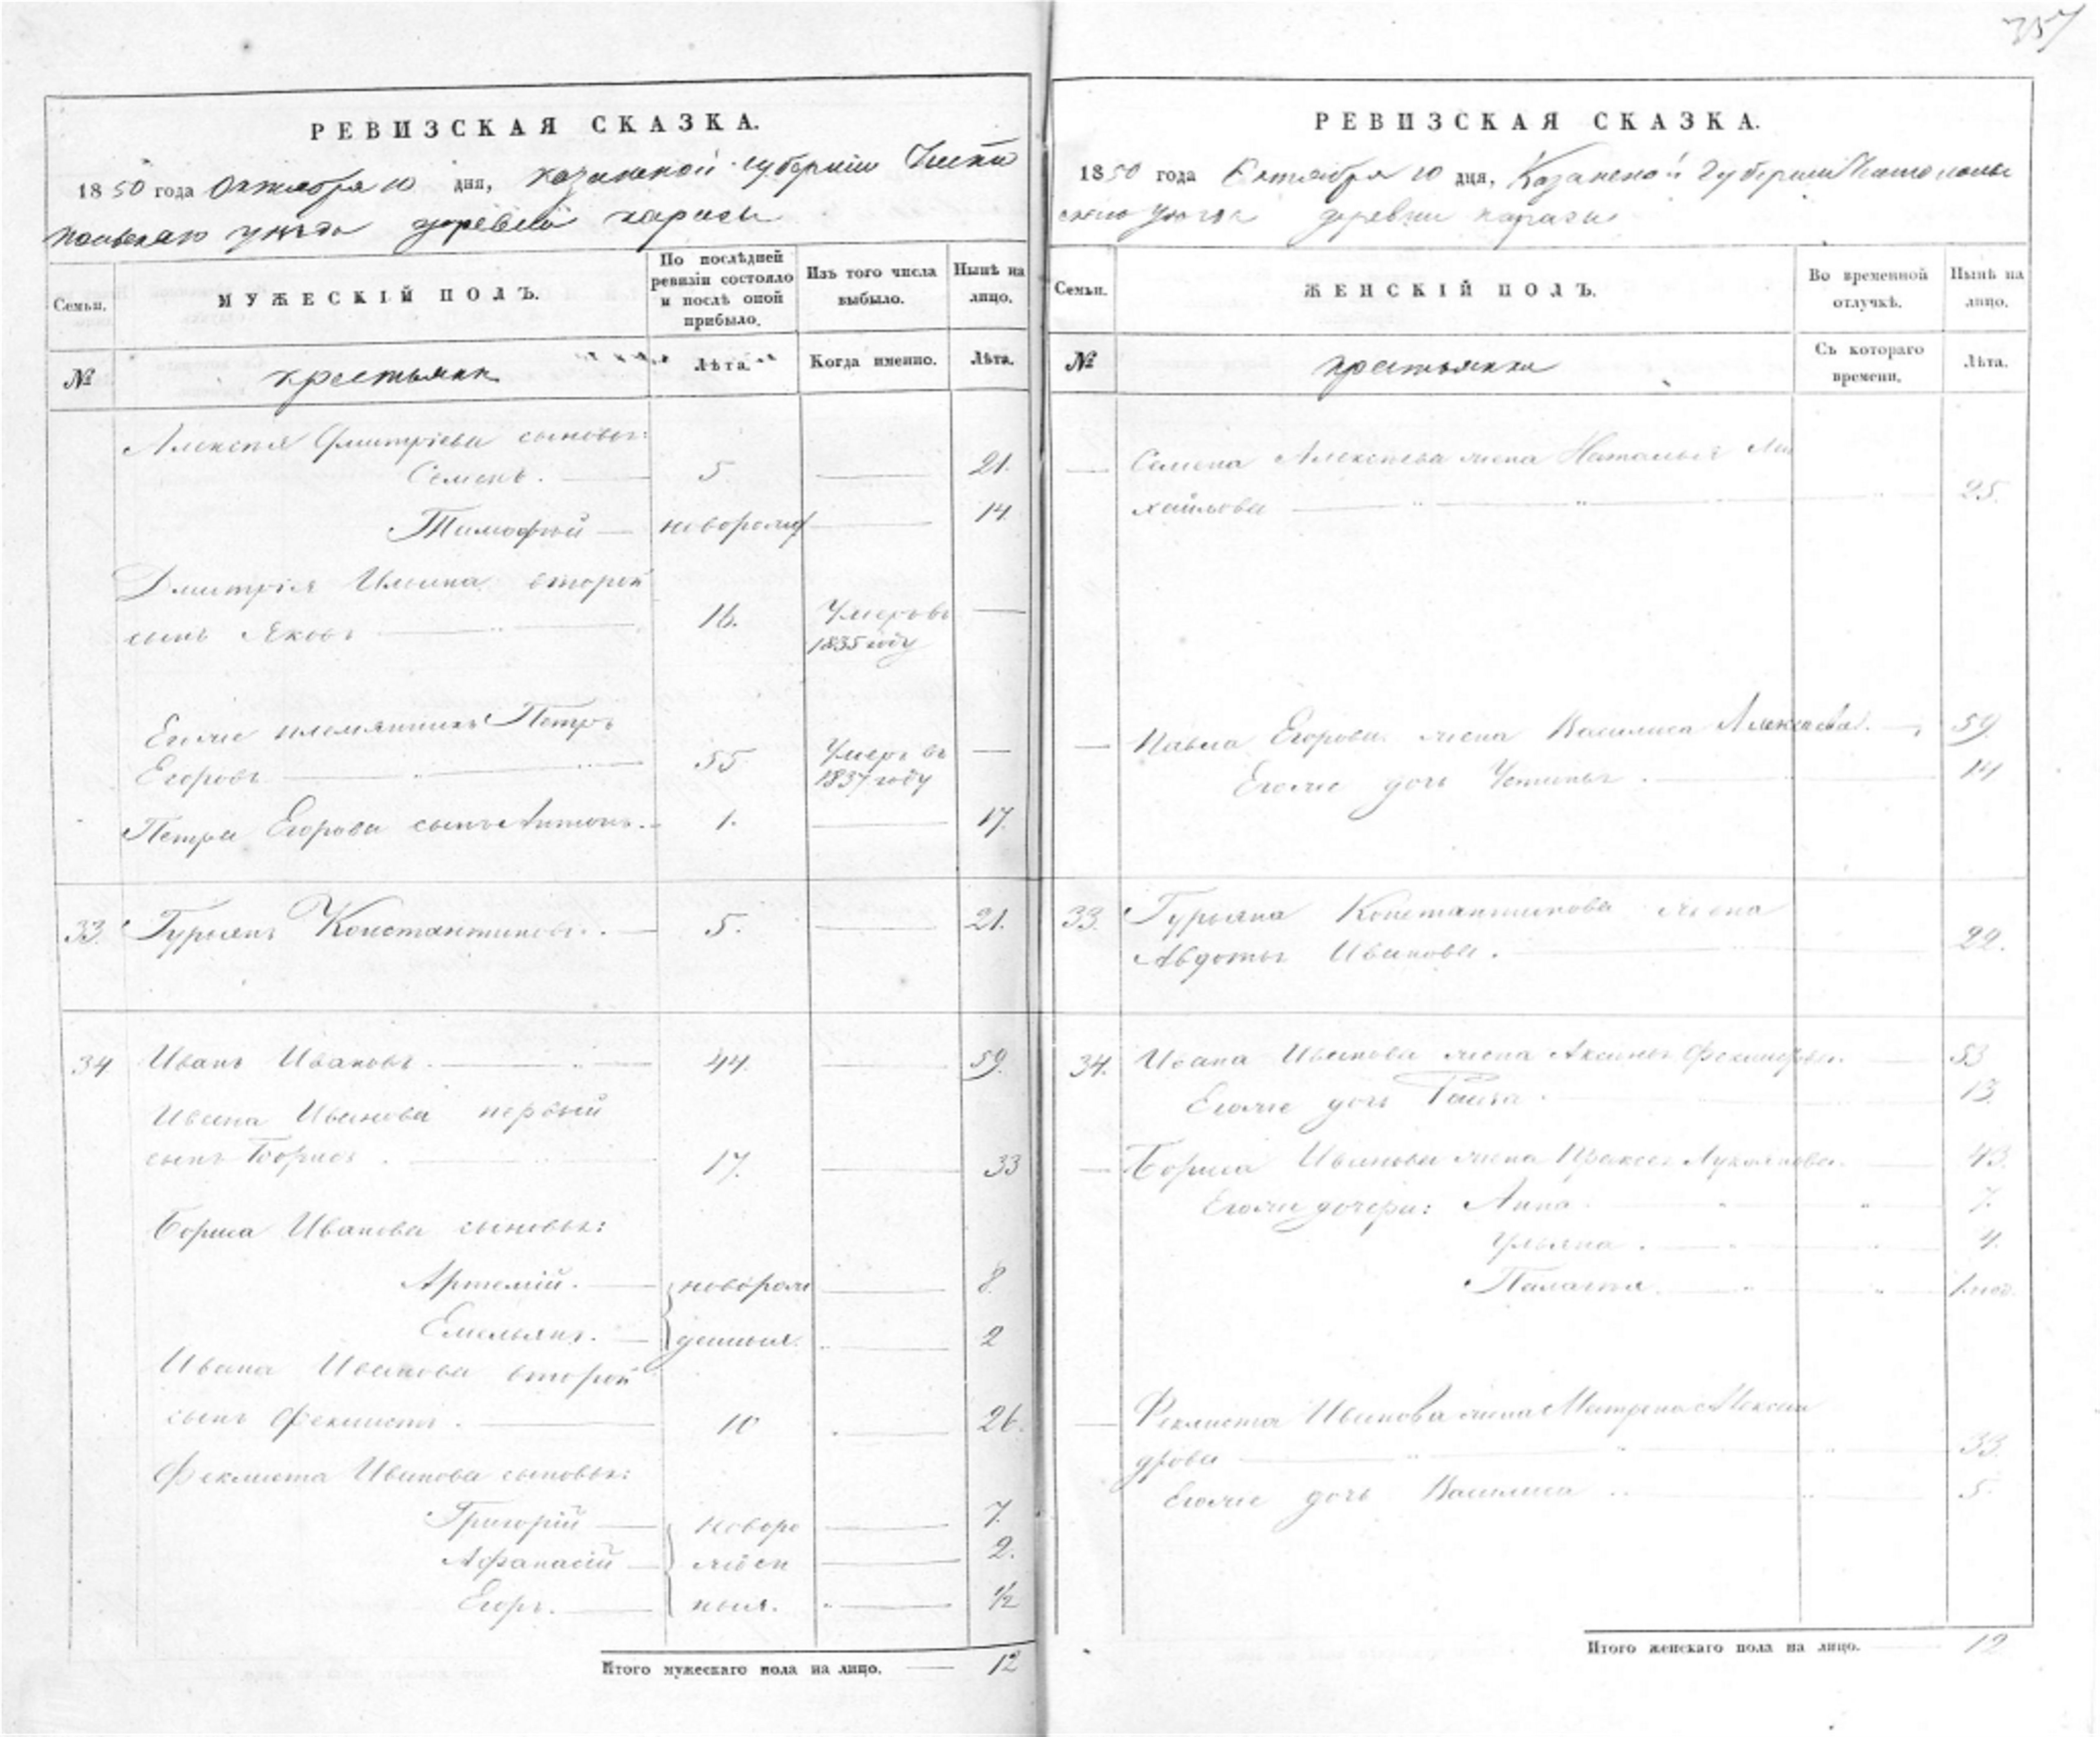 357
РЕВИЗСКАЯ СКАЗКА.
1850 года Октября 10 дня, Казанской губерніи Чисто
польскаго уѣзда деревни Карасы
Семьи.
МУЖЕСКІЙ ПОЛЪ.
По послѣдней
ревизіи состояло
и послѣ оной
прибыло.
Изъ того числа
выбыло.
Нынѣ на
лицо.
№
крестьяне
Лѣта.
Когда именно.
Лѣта.
Алексѣя Дмитріева сыновья:
Семенъ. 5. 21.
Тимофей новорожд 14.
Дмитрія Ильина второй
сынъ Яковъ 16. Умеръ въ
1835 году
Егоже племянникъ Петръ
Егоровъ 55 Умеръ въ
1837 году
Петра Егорова сынъ Антонъ. 1. 17.
33. Гурьянъ Константиновъ. 5. 21.
34 Иванъ Ивановъ. 44. 59.
Ивана Иванова первый
сынъ Борисъ. 17. 33
Бориса Иванова сыновья:
Артемій. новорож 8.
Емельянъ. денныя. 2
Ивана Иванова второй
сынъ Феклистъ. 10 26.
Феклиста Иванова сыновья:
Григорій новоро 7.
Афанасій жден 2.
Егоръ. ныя. 1/2
Итого мужескаго пола на лицо. 12
РЕВИЗСКАЯ СКАЗКА.
1850 года Октября 10 дня, Казанской Губерніи Чистополь
скаго уѣзда деревни Карасы
Семьи.
ЖЕНСКІЙ ПОЛЪ.
Во временной
отлучкѣ.
Нынѣ на
лицо.
№
крестьянки
Съ котораго
времени.
Лѣта.
Семена Алексѣева жена Наталья Ми
хайлова 25.
Павла Егорова жена Василиса Алексѣева. 59.
Егоже дочь Устинья. 14
33. Гурьяна Константинова жена
Авдотья Иванова. 22.
34. Ивана Иванова жена Аксинья 53
Егоже дочь Раиса. 13.
Бориса Иванова жена Лукоянова. 43.
Егоже дочери: Анна. 7.
Ульяна. 4.
Палагея. 1.
Феклиста Иванова жена Матрена Алексан
дрова 33.
Егоже дочь Василиса 5.
Итого женскаго пола на лицо. 12